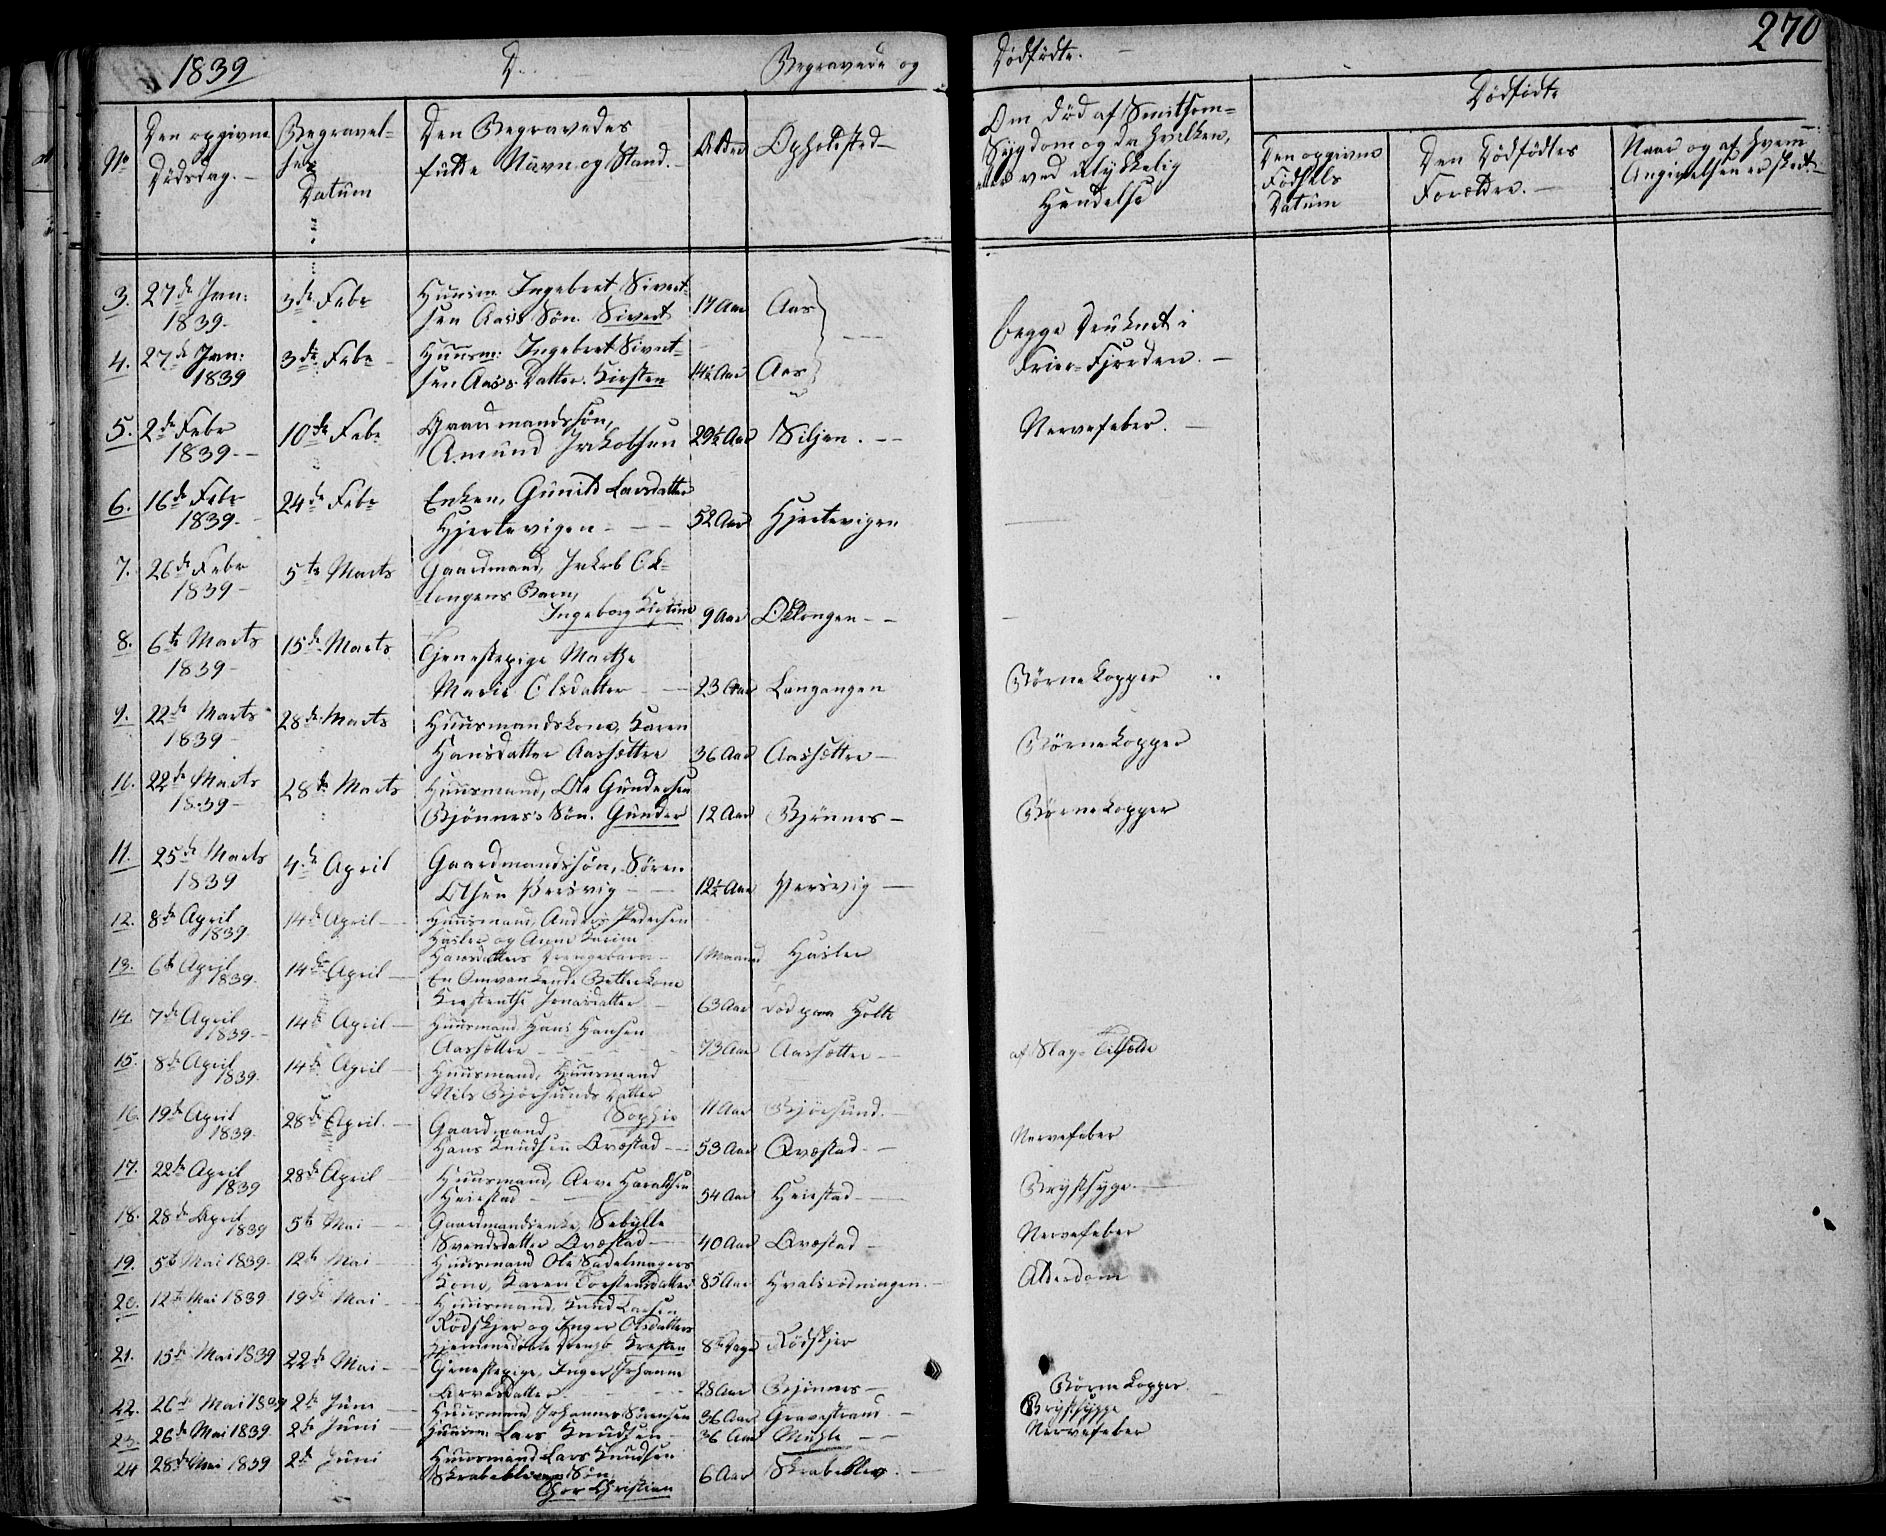 270
1839 D. Begravede og Dødfødte.
No
Den opgivne Dødsdag.
Begravelses Datum
Den Begravedes fulde Navn og Stand.
Alder
Opholdsted
Om død af Smitsom-
Sygdom og da hvilken,
eller ved ulykkelig
Hændelse
Dødfødte
Den opgivne Fødsels Datum
Den Dødfødtes Forældre.
Naar og af hvem Angivelsen er skeet.
3. 27de Jan: 1839. 3de Febr Huusm. Ingebret Sivert-
sen Aas's Søn. Sivert 17 Aar Aas
begge Druknet i
Frier-Fjorden.
4. 27de Jan: 1839 3de Febr Huusm: Ingebret Sivert-
sen Aas's Datter. Kirsten 14½ Aar Aas
5. 2de Febr 1839 10de Febr Gaardmandssøn,
Amund Jakobsen 29½ Aar Siljan. Nervefeber.
6. 16de Febr 1839. 24de Febr Enken, Gunild Larsdatter
Hjertevigen 52 Aar Hjertevigen
7. 26de Febr 1839 5te Marts Gaardmand, Jakob Ok-
longens Barn,
Ingeborg Kirstine 9 Aar Oklongen
8. 6te Marts 1839 15de Marts Tjenestepige Marthe
Marie Olsdatter 23 Aar Langangen Børnekopper
9. 22de Marts 1839 28de Marts Huusmandskone, Karen
Hansdatter Aassætter 36 Aar Aassætter Børnekopper
10. 22de Marts 1839 28de Marts Huusmand, Ole Gundersen
Bjønnes's Søn. Gunder 12 Aar Bjønnes Børnekopper
11. 25de Marts 1839 4de April Gaardmandssøn, Søren
Olsen Versvig 12½ Aar Versvig
12. 8de April 1839. 14de April Huusmand, Anders Pedersen
Hasler og Anne Karine
Hansdatters Drengebarn 1 Maaned Hasler
13. 6te April 1839. 14de April En Omvankende Betlerkone
Jonasdatter 63 Aar død paa Holte
14. 7de April 1839. 14de April Huusmand Hans Hansen
Aassætter 73 Aar Aassætter af Slag-Tilfælde
15. 8de April 1839. 14de April Huusmand, Huusmand
Nils Bjørsunds Datter
Sophie 11 Aar Bjørsund.
16. 19de April 1839. 28de April. Gaardmand
Hans Knudsen Qvæstad 53 Aar Qvæstad Nervefeber
17. 22de April 1839 28de April Huusmand, Arve Haraldsen
Heiestad 54 Aar Heiestad Brystsyge
18. 28de April 1839 5te Mai Gaardmandsenke, Sebylle
Svendsdatter Qvæstad 40 Aar Qvæstad Nervefeber
19. 5te Mai 1839. 12te Mai Huusmand Ole Sadelmagers
Kone, Karen Torstensdatter 85 Aar Hvalsrødningen. Alderdom
20. 12te Mai 1839 19de Mai Huusmand, Knud Larsen
Rødskjer og Inger Olsdatters
Hjemmedøbte Drengb. Kresten 8te Dage Rødskjer
21. 15de Mai 1839 22de Mai Tjenestepige, Inger Johanne
Arvesdatter 28 Aar Bjønnes Børnekopper.
22. 26de Mai 1839 2de Juni Huusmand Johannes Sørensen 36 Aar Gravastrand Brystsyge
23. 26de Mai 1839 2de Juni Huusm: Lars Knudsen 36 Aar Mühle Nervefeber
24 28de Mai 1839 2de Juni Huusmand Lars Knudsen
Skrabeklev Søn
Thor Christian 6 Aar Skrabeklev.